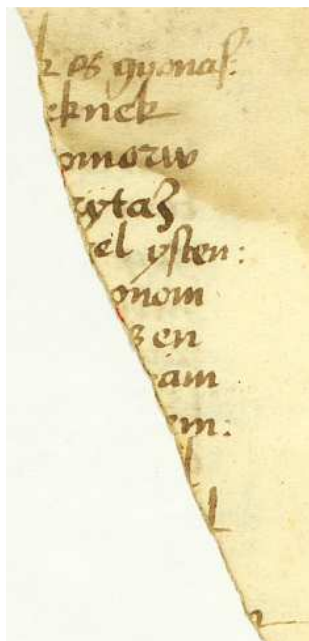 k es gyonas:
eknek
omorw
rytaz
el ysten:
onom
z en
am
em: